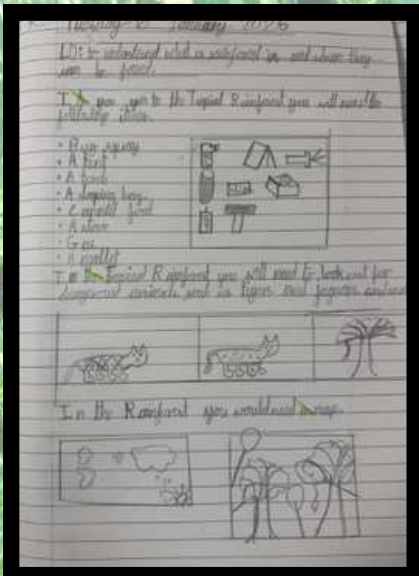 Tuesday 6 January 2026
LO: to understand what a rainforest is and where they
can be found.
If you go to the Tropical Rainforest you will need the
following items.
• Bug spray
• A tent
• A torch
• A sleeping bag
• Canned food
• A stove
• Gas
• A mallet
In the Tropical Rainforest you will need to look out for
dangerous animals such as tigers and jaguars
In the Rainforest you would need a map.